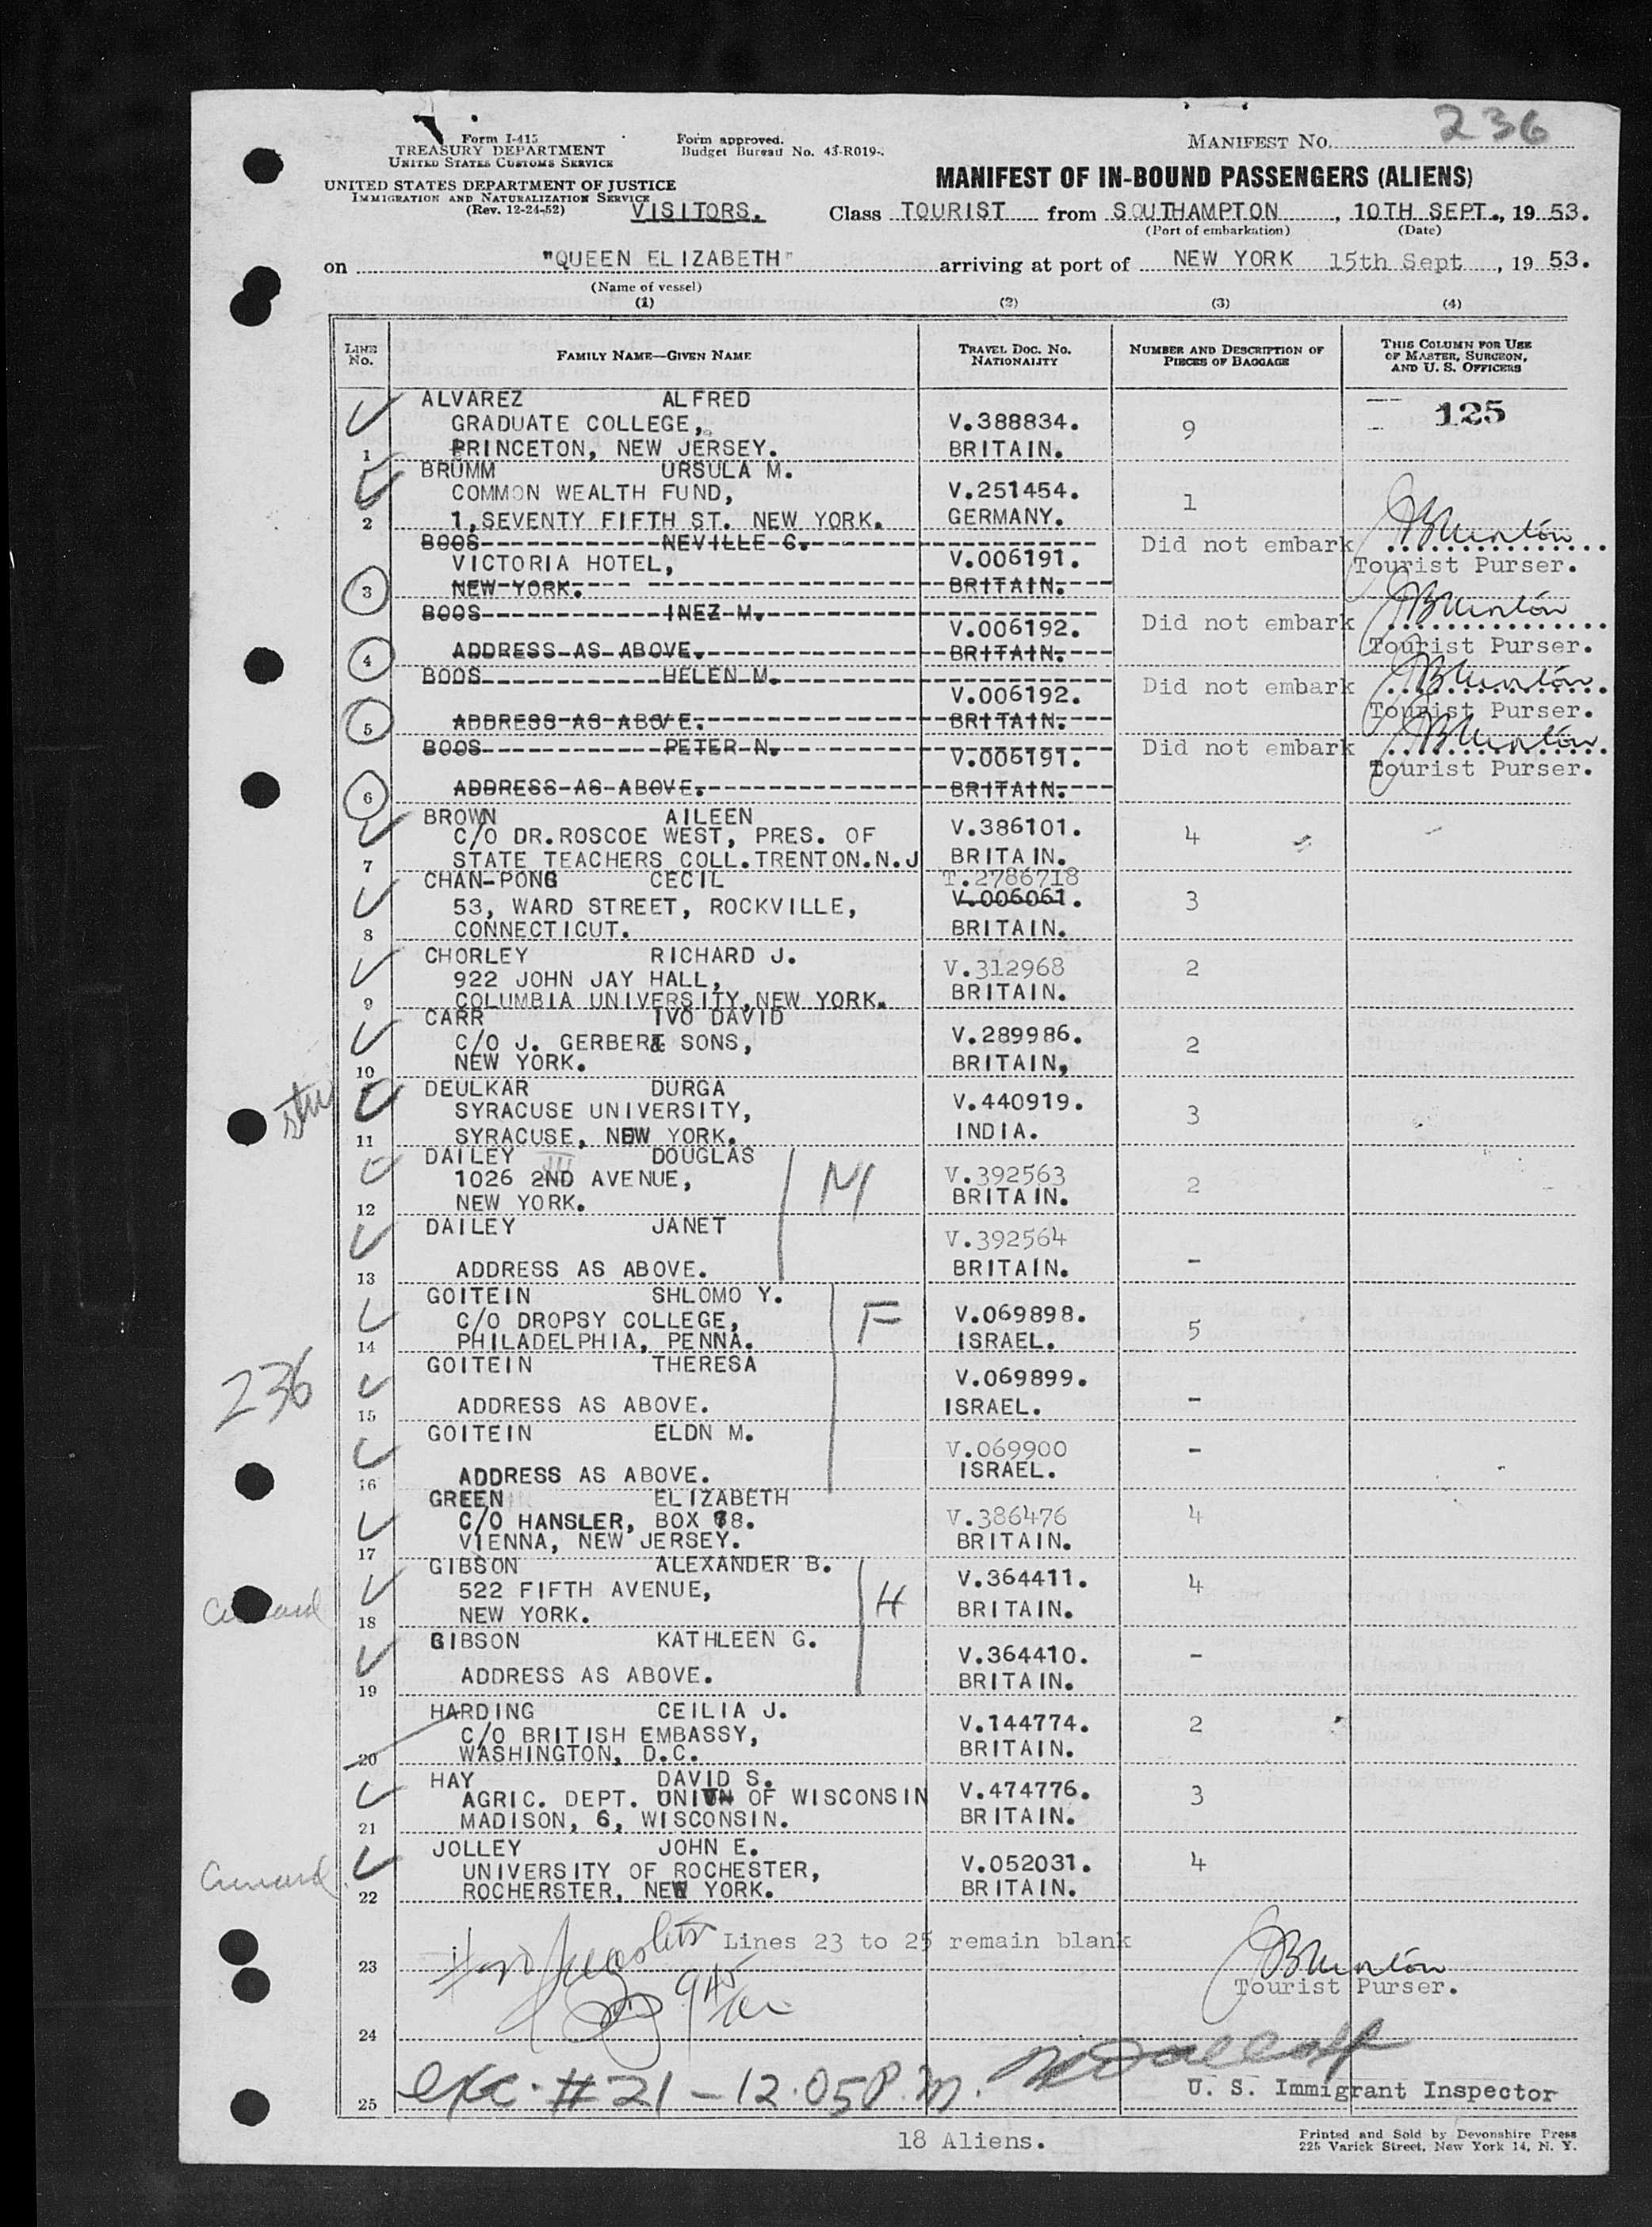 236
Form I-415
TREASURY DEPARTMENT
UNITED STATES CUSTOMS SERVICE
Form approved.
Budget Bureau No. 43-R019-.
MANIFEST No.
UNITED STATES DEPARTMENT OF JUSTICE
IMMIGRATION AND NATURALIZATION SERVICE
(Rev. 12-24-52)
VISITORS.
MANIFEST OF IN-BOUND PASSENGERS (ALIENS)
Class TOURIST from SOUTHAMPTON, 10TH SEPT., 19 53.
(Port of embarkation) (Date)
on "QUEEN ELIZABETH" arriving at port of NEW YORK 15th Sept, 19 53.
(Name of vessel)
(1) (2) (3) (4)
LINE No. FAMILY NAME—GIVEN NAME TRAVEL DOC. No. NATIONALITY NUMBER AND DESCRIPTION OF PIECES OF BAGGAGE THIS COLUMN FOR USE OF MASTER, SURGEON, AND U. S. OFFICERS
ALVAREZ ALFRED 125
GRADUATE COLLEGE, V.388834. 9
1 PRINCETON, NEW JERSEY. BRITAIN.
BRUMM URSULA M.
COMMON WEALTH FUND, V.251454. 1
2 1,SEVENTY FIFTH ST. NEW YORK. GERMANY.
BOOS NEVILLE G. Did not embark
VICTORIA HOTEL, V.006191. Tourist Purser.
3 NEW YORK. BRITAIN.
BOOS INEZ M. V.006192. Did not embark
4 ADDRESS AS ABOVE. BRITAIN. Tourist Purser.
BOOS HELEN M. V.006192. Did not embark
5 ADDRESS AS ABOVE. BRITAIN. Tourist Purser.
BOOS PETER N. V.006191. Did not embark
6 ADDRESS AS ABOVE. BRITAIN. Tourist Purser.
BROWN AILEEN
C/O DR.ROSCOE WEST, PRES. OF V.386101. 4
7 STATE TEACHERS COLL.TRENTON.N.J BRITAIN.
CHAN-PONG CECIL T.2786718
53, WARD STREET, ROCKVILLE, V.006061. 3
8 CONNECTICUT. BRITAIN.
CHORLEY RICHARD J.
922 JOHN JAY HALL, V.312968 2
9 COLUMBIA UNIVERSITY,NEW YORK. BRITAIN.
CARR IVO DAVID
C/O J. GERBER& SONS, V.289986. 2
10 NEW YORK. BRITAIN,
DEULKAR DURGA
SYRACUSE UNIVERSITY, V.440919. 3
11 SYRACUSE, NEW YORK. INDIA.
DAILEY DOUGLAS M
1026 2ND AVENUE, V.392563 2
12 NEW YORK. BRITAIN.
DAILEY JANET V.392564
13 ADDRESS AS ABOVE. BRITAIN. -
GOITEIN SHLOMO Y. F
C/O DROPSY COLLEGE, V.069898. 5
14 PHILADELPHIA, PENNA. ISRAEL.
236
GOITEIN THERESA V.069899.
15 ADDRESS AS ABOVE. ISRAEL. -
GOITEIN ELDN M. V.069900 -
16 ADDRESS AS ABOVE. ISRAEL.
GREEN ELIZABETH
C/O HANSLER, BOX 78. V.386476 4
17 VIENNA, NEW JERSEY. BRITAIN.
GIBSON ALEXANDER B. H
522 FIFTH AVENUE, V.364411. 4
18 NEW YORK. BRITAIN.
GIBSON KATHLEEN G. V.364410. -
19 ADDRESS AS ABOVE. BRITAIN.
HARDING CEILIA J.
C/O BRITISH EMBASSY, V.144774. 2
20 WASHINGTON, D.C. BRITAIN.
HAY DAVID S.
AGRIC. DEPT. UNIVN OF WISCONSIN V.474776. 3
21 MADISON, 6, WISCONSIN. BRITAIN.
JOLLEY JOHN E.
Cunard
UNIVERSITY OF ROCHESTER, V.052031. 4
22 ROCHERSTER, NEW YORK. BRITAIN.
Lines 23 to 25 remain blank
23
Tourist Purser.
24
25 exc. #21 - 12.05 P.M.
U. S. Immigrant Inspector
18 Aliens.
Printed and Sold by Devonshire Press
225 Varick Street, New York 14, N. Y.